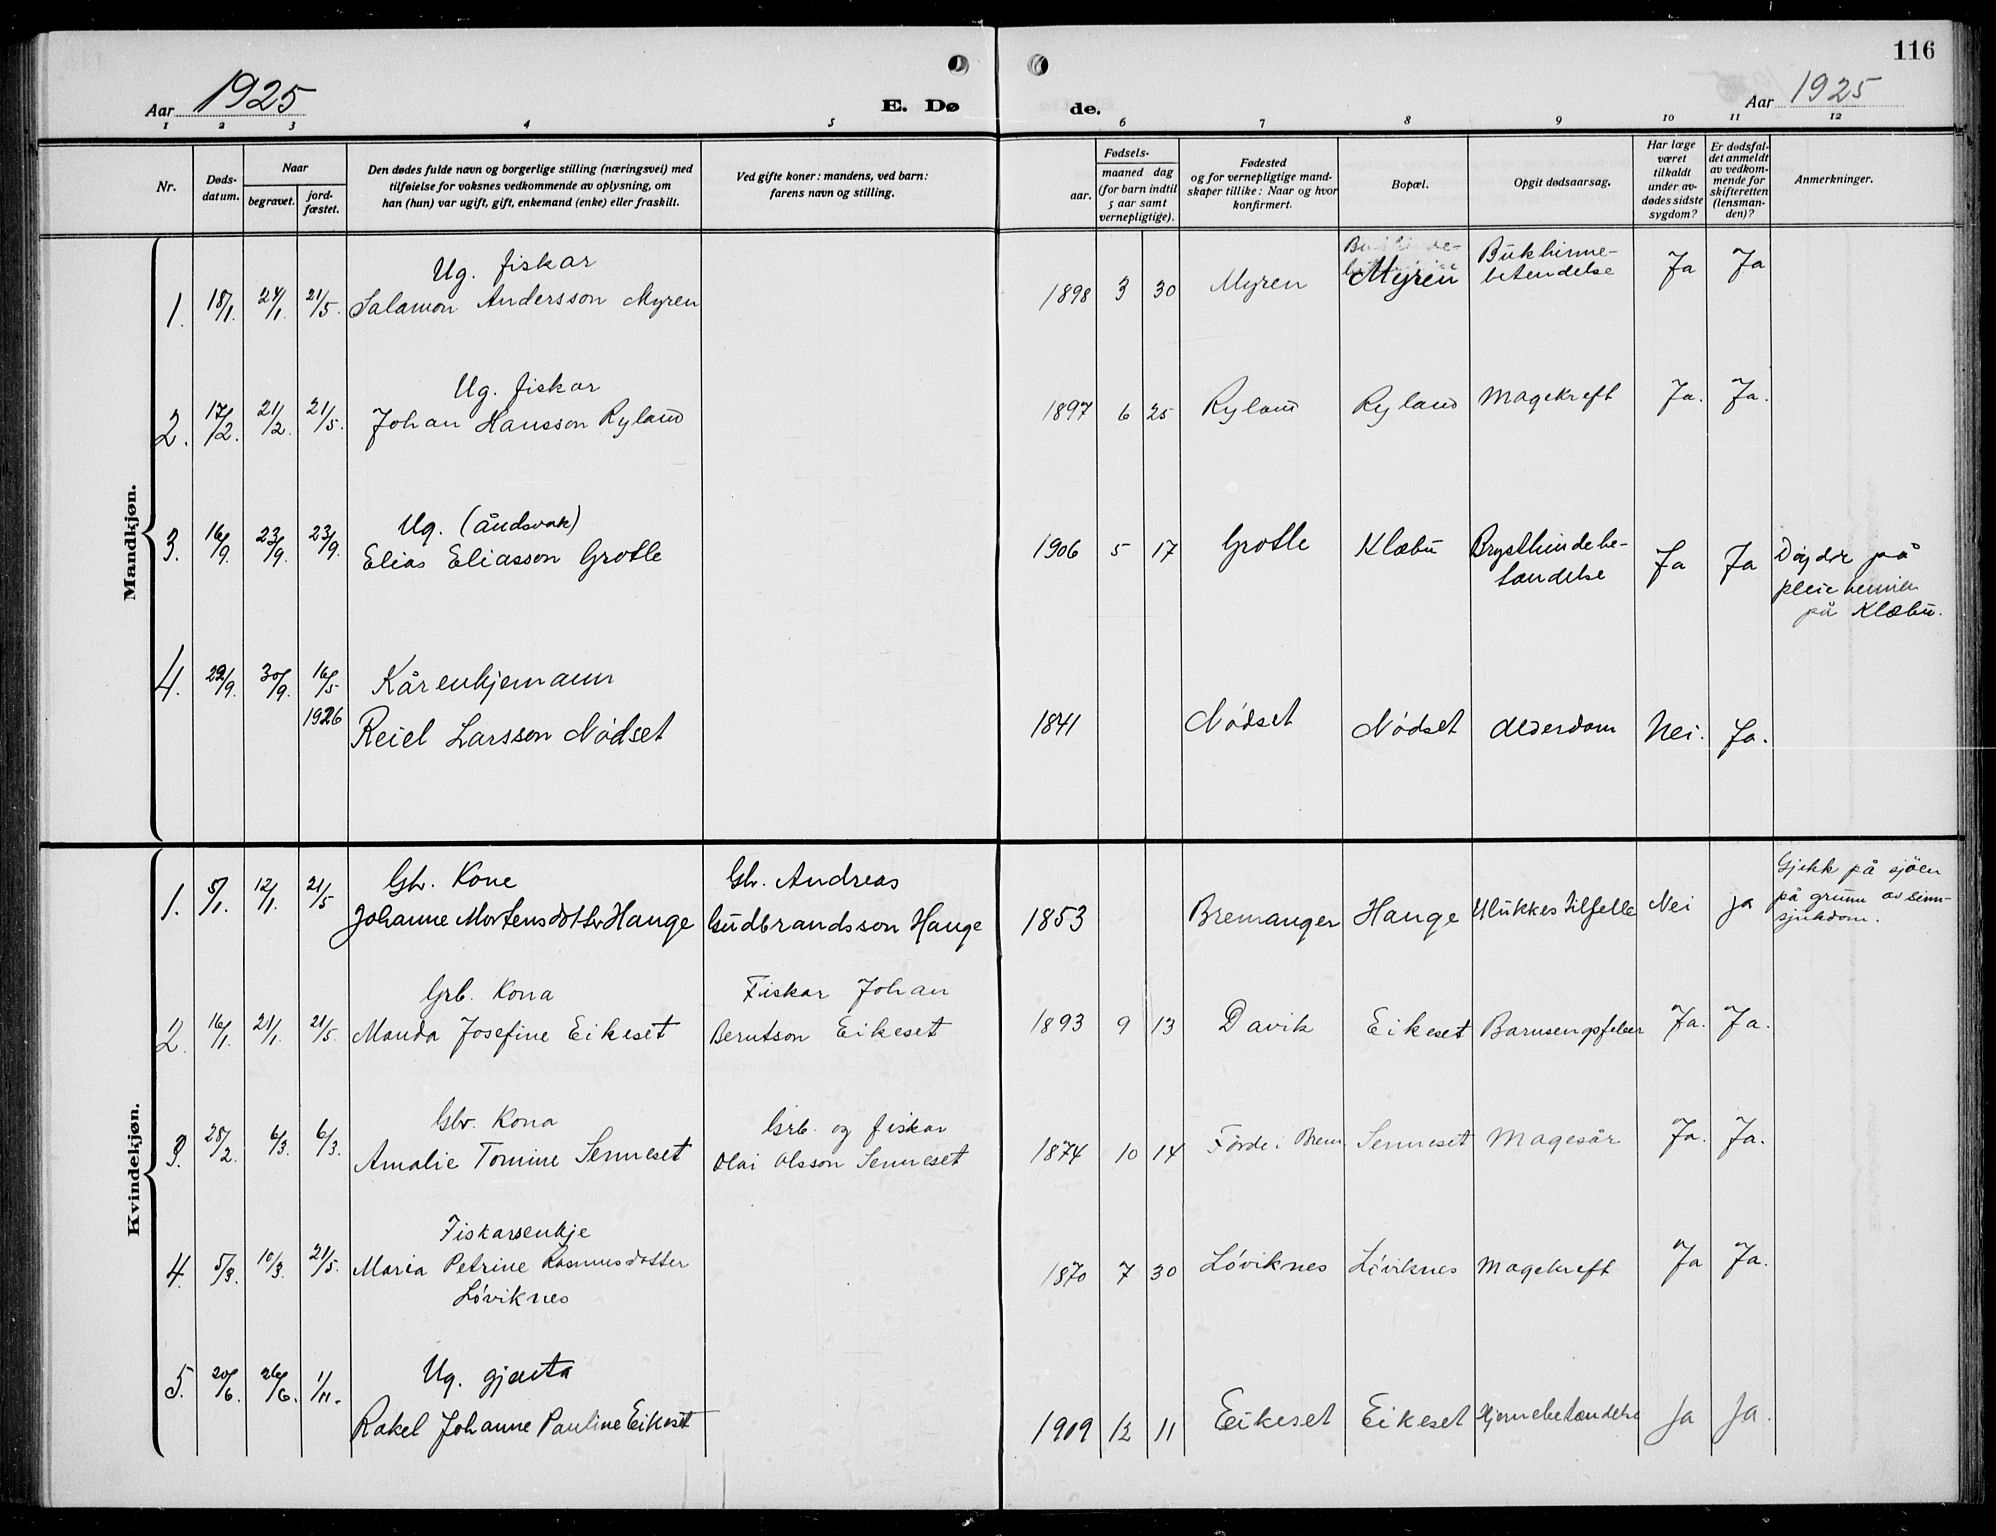 116
Aar 1925 E. Dø de. Aar 1925
1 2 3 4 5 6 7 8 9 10 11 12
Nr.
Døds-
datum.
Naar
begravet.
jord-
fæstet.
Den dødes fulde navn og borgerlige stilling (næringsvei) med
tilføielse for voksnes vedkommende av oplysning, om
han (hun) var ugift, gift, enkemand (enke) eller fraskilt.
Ved gifte koner: mandens, ved barn:
farens navn og stilling.
Fødsels-
aar.
maaned dag
(for barn indtil
5 aar samt
vernepligtige).
Fødested
og for vernepligtige mand-
skaper tillike: Naar og hvor
konfirmert.
Bopæl.
Opgit dødsaarsag.
Har læge
været
tilkaldt
under av-
dødes sidste
sygdom?
Er dødsfal-
det anmeldt
av vedkom-
mende for
skifteretten
(lensman-
den)?
Anmerkninger.
Mandkjøn.
Ug. fiskar
1. 18/1. 24/1. 21/5. Salamon Andersson Myren 1898 3 30 Myren Myren Bukhinne-
betendelse Ja Ja
Ug. fiskar
2. 17/2. 21/2. 21/5. Johan Hansson Ryland 1897 6 25 Ryland Ryland Magekreft Ja. Ja.
Ug. (åndsvak)
3. 16/9. 23/9. 23/9. Elias Eliasson Grotle 1906 5 17 Grotle Klæbu Brysthindebe-
tændelse Ja Ja Døydde på
pleieheimen
på Klæbu.
4. 22/9. 30/9. 16/5 Kårenkjemann
1926 Reiel Larsson Nödset 1841 Nödset Nödset Alderdom Nei. Ja.
Kvindekjøn.
Gbr. Kone Gbr. Andreas
1. 5/1. 12/1. 21/5 Johanne Mortensdotter Hauge Gudbrandsson Hauge 1853 Bremanger Hauge Ulukkestilfelle Nei ja Gjekk på sjöen
på grunn av sinn-
sjukdom.
Grb. Kona Fiskar Johan
2. 16/1. 21/1. 21/5. Manda Josefine Eikeset Berntson Eikeset 1893 9 13 Davik Eikeset Barnsengsfeber Ja. Ja.
Gbr. Kona Grb. og fiskar
3. 28/2. 6/3. 6/3. Amalie Tomine Senneset Olai Olsson Senneset 1874 10 14 Förde i Brem Senneset Magesår Ja. Ja.
Fiskarsenkje
4. 5/3. 10/3. 21/5. Maria Petrine Rasmusdotter
Löviknes 1870 7 30 Löviknes Löviknes Magekreft Ja Ja.
Ug. gjæta
5. 20/6. 26/6. 1/11. Rakel Johanne Pauline Eikeset 1909 12 11 Eikeset Eikeset Hjernebetændelse Ja Ja.